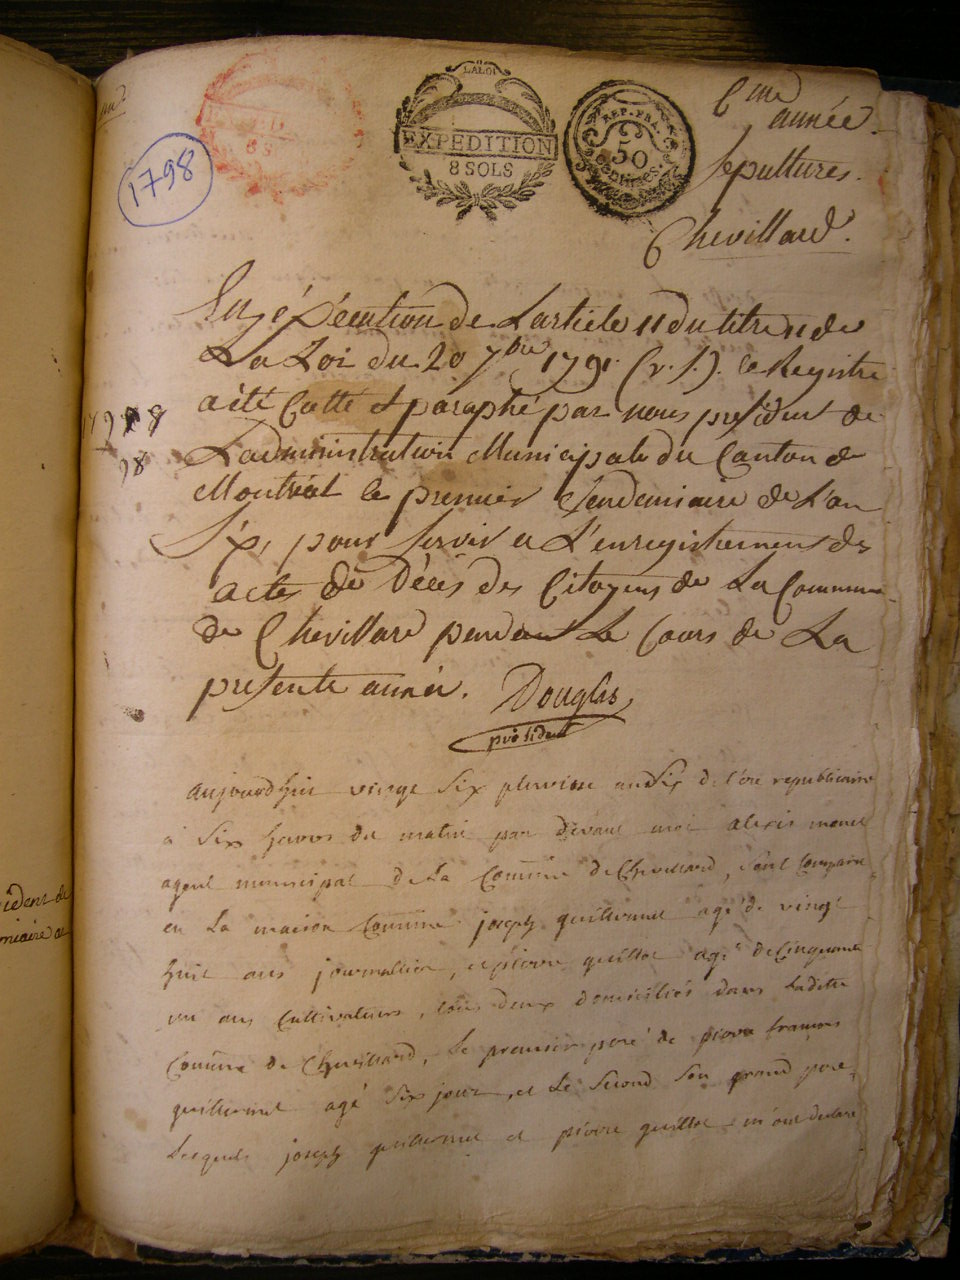 1798
LALOI
EXPEDITION
8 SOLS
REP. FRA.
50
centimes
6me
année.
Sépultures.
Chevillard.
En éxécution de Larticle 11 du titre 11 de
La Loi du 20 7bre 1791. (v. s.). le Registre
a été Cotté et paraphé par nous président de
Ladministration Municipale du Canton de
Montréal le premier Vendemiaire de L'an
Six, pour servir a L'enregistrement des
actes de Décès des Citoyens de La Commune
de Chevillard pendant Le Cours de La
présente année. Douglas
président
1798
98
aujourdhui vingt six pluviose an Six de l'ere republicaine
a six heures du matin par devant moi alexis
agent municipal de La Comune de Chevillard, sont Comparu
en La maison Comune joseph guillermet agé de vingt
huit ans journallier, et pierre guillot agé de Cinquante
un ans Cultivateurs, tous deux domiciliés dans Ladite
Comune de Chevillard, Le premier peré de pierre françois
guillermet agé six jour, et Le second son grand pere,
Lesquels joseph guillermet et pierre guillot m'ont declaré
ident de
miaire de